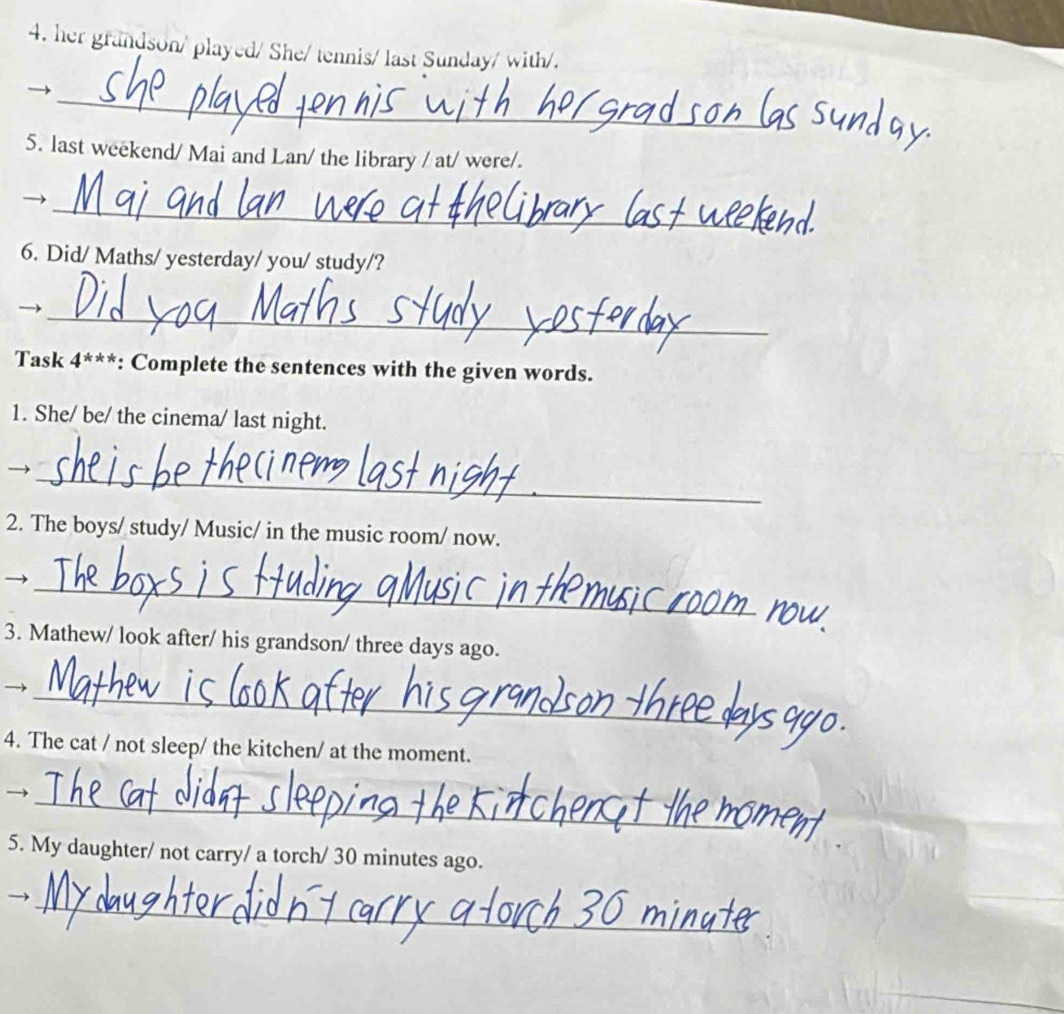 4. her grandson/ played/ She/ tennis/ last Sunday/ with/.
→ she played tennis with her gradson las sunday.
5. last weekend/ Mai and Lan/ the library / at/ were/.
→ Mai and lan were at the library last weekend.
6. Did/ Maths/ yesterday/ you/ study/?
→ Did you Maths study yesterday
Task 4***: Complete the sentences with the given words.
1. She/ be/ the cinema/ last night.
→ she is be the cinema last night.
2. The boys/ study/ Music/ in the music room/ now.
→ The boys is studing a Music in the music room now.
3. Mathew/ look after/ his grandson/ three days ago.
→ Mathew is look after his grandson three days ago.
4. The cat / not sleep/ the kitchen/ at the moment.
→ The cat didn't sleeping the kintchen at the moment.
5. My daughter/ not carry/ a torch/ 30 minutes ago.
→ My daughter didn't carry a torch 30 minutes.